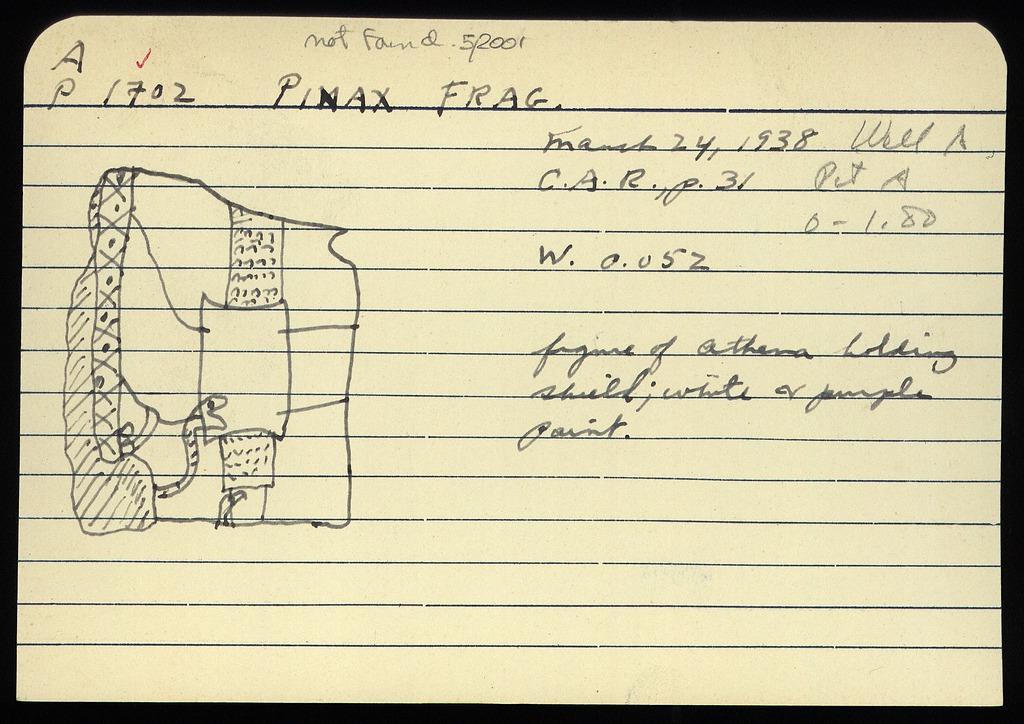 not Found. 5/2001
A
P 1702 PINAX FRAG.
March 24, 1938 Well A
C.A.R., p. 31 Pit A
0 - 1.80
W. 0.052
figure of athena holding
shield; white & purple
paint.